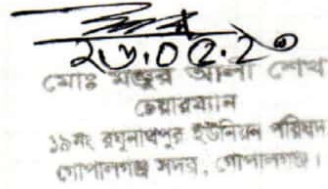 ২৬.০৫.২১
মোঃ মঞ্জুর আলী শেখ
চেয়ারম্যান
১৯নং রঘুনাথপুর ইউনিয়ন পরিষদ
গোপালগঞ্জ সদর, গোপালগঞ্জ।